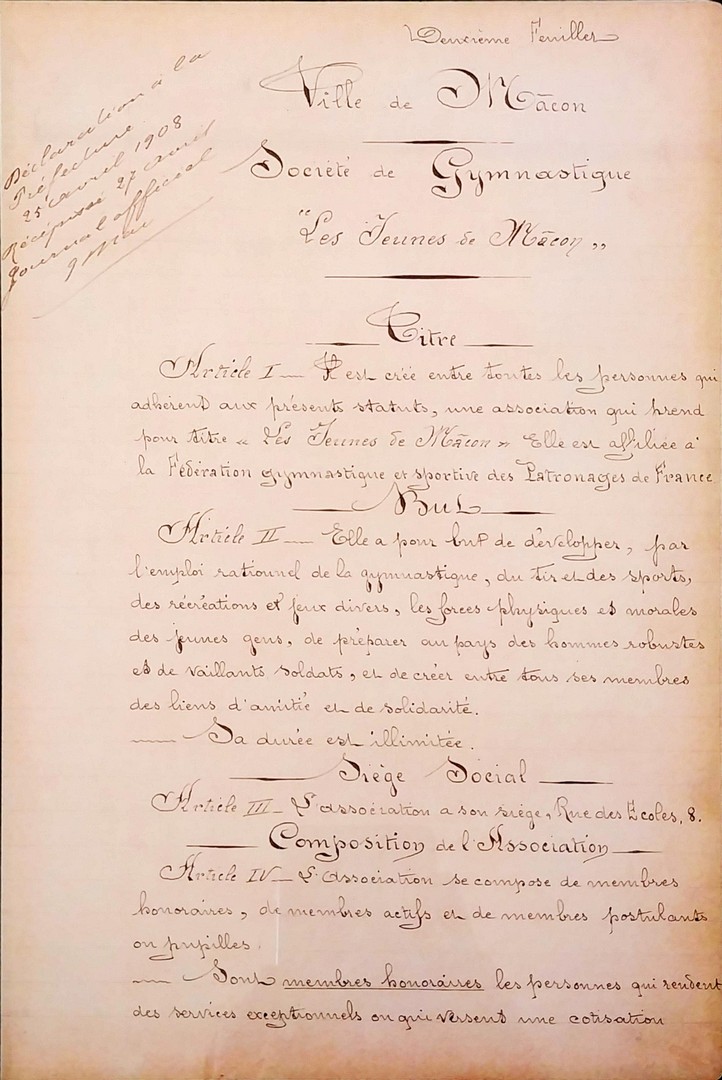 Deuxième Feuillet
Déclaration à la
Préfecture
25 avril 1908
Récépissé 27 avril
Journal officiel
9 Mai
Ville de Mâcon
Société de Gymnastique
"Les Jeunes de Mâcon"
Titre
Article I — Il est créé entre toutes les personnes qui
adhèrent aux présents statuts, une association qui prend
pour titre « Les Jeunes de Mâcon » Elle est affiliée à
la Fédération gymnastique et sportive des Patronages de France
But
Article II — Elle a pour but de développer, par
l'emploi rationnel de la gymnastique, du tir et des sports,
des récréations et jeux divers, les forces physiques et morales
des jeunes gens, de préparer au pays des hommes robustes
et de vaillants soldats, et de créer entre tous ses membres
des liens d'amitié et de solidarité.
— Sa durée est illimitée.
Siège Social
Article III — L'Association a son siège, Rue des Ecoles, 8.
Composition de l'Association
Article IV — L'Association se compose de membres
honoraires, de membres actifs et de membres postulants
ou pupilles.
— Sont membres honoraires les personnes qui rendent
des services exceptionnels ou qui versent une cotisation